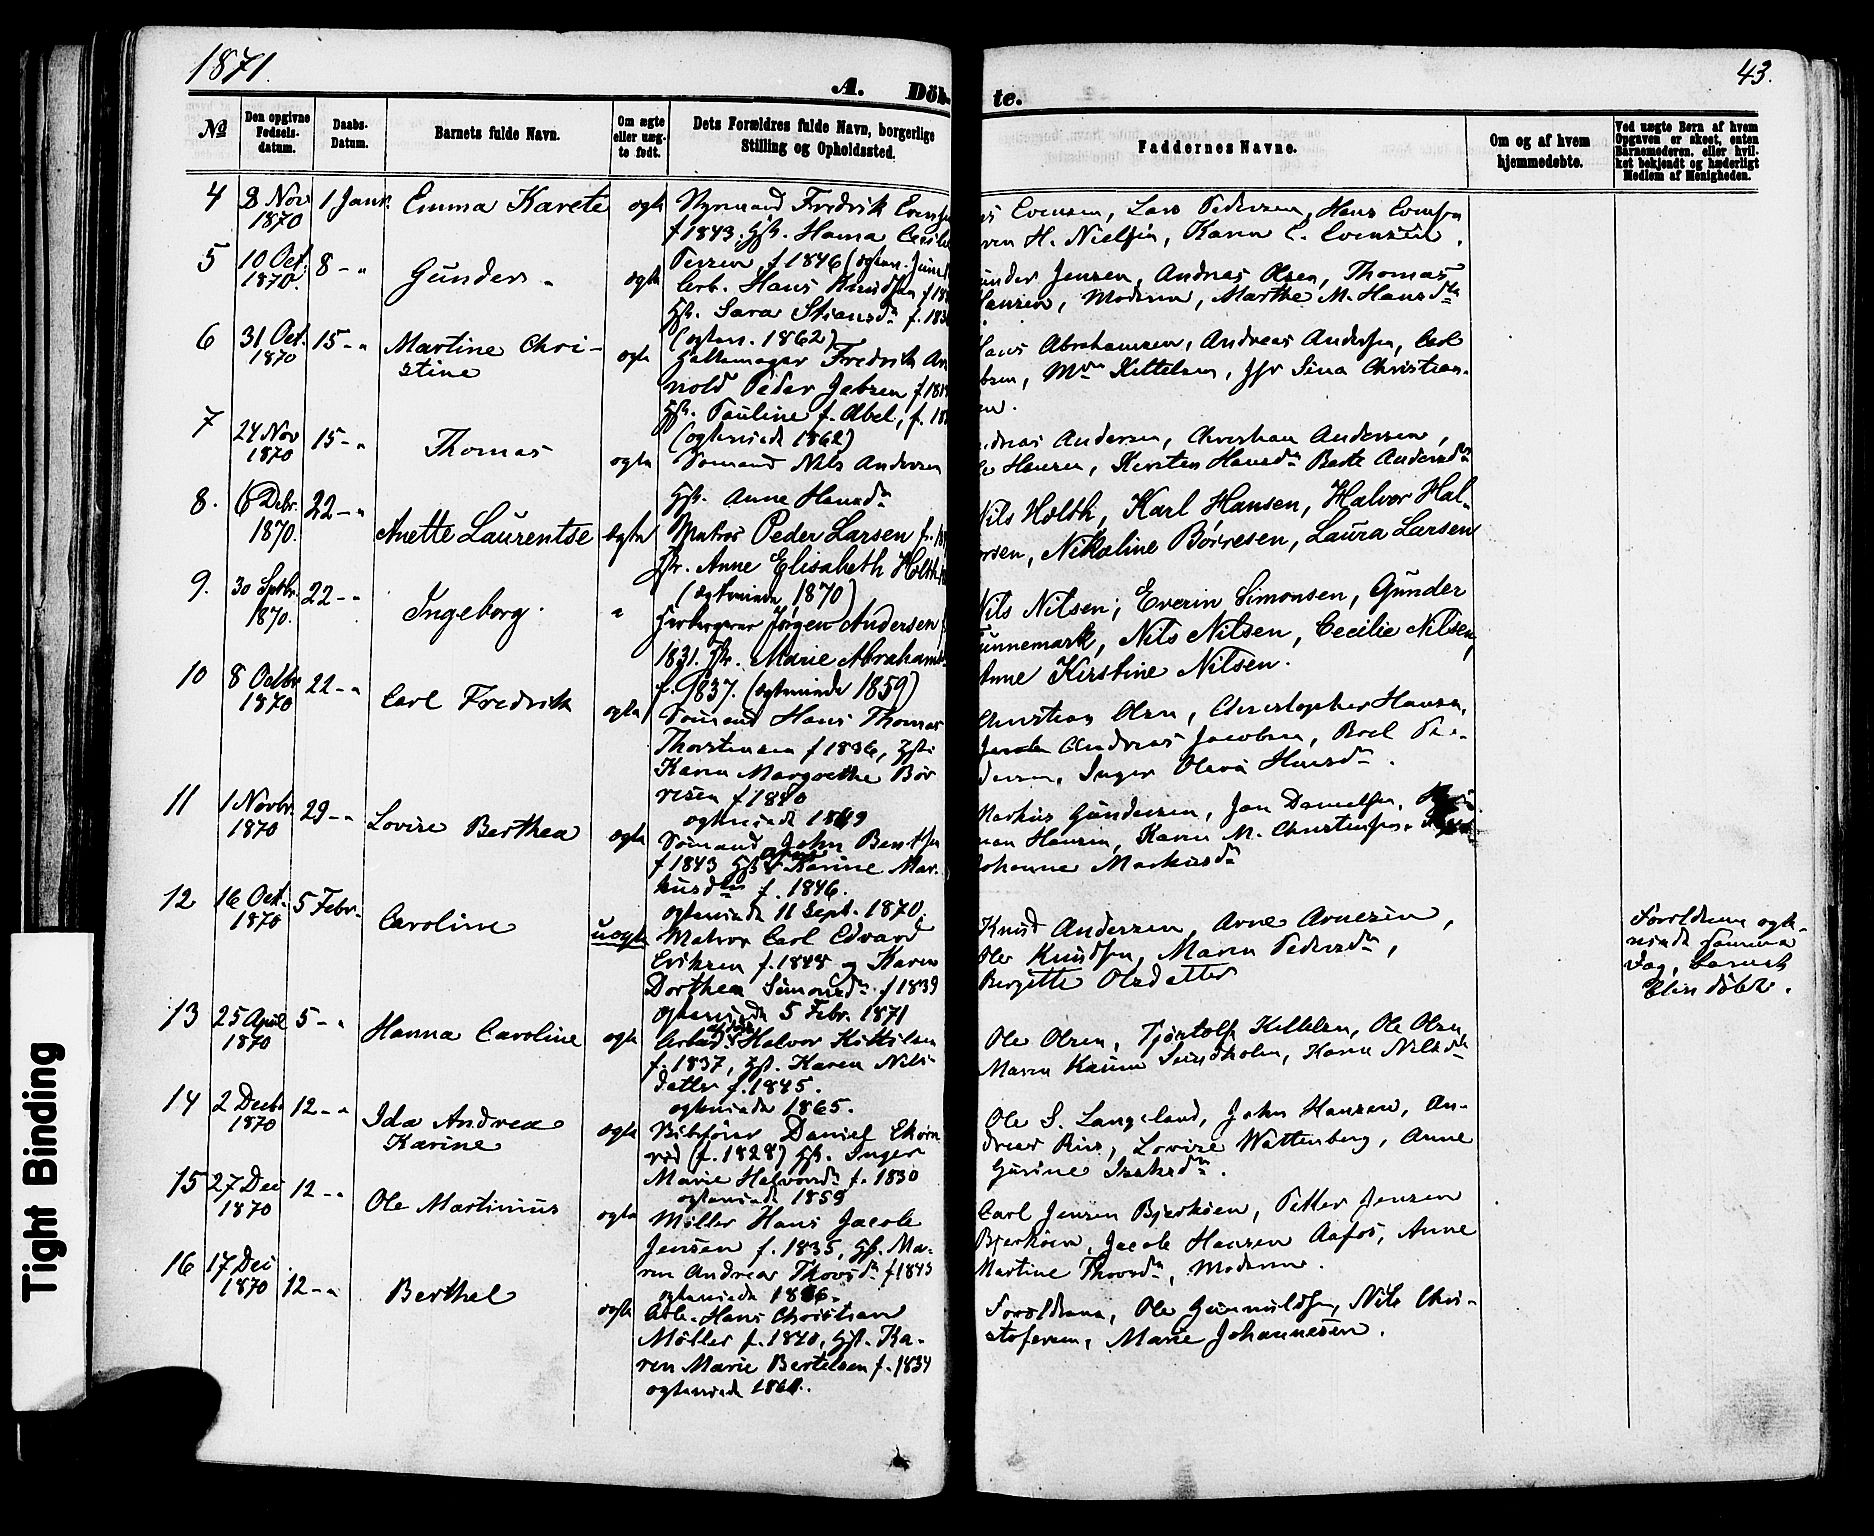 1871.
43.
A. Döb-
te.
No
Den opgivne Fødsels-datum.
Daabs-Datum.
Barnets fulde Navn.
Om ægte eller uæg-te født.
Dets Forældres fulde Navn, borgerlige Stilling og Opholdssted.
Faddernes Navne.
Om og af hvem hjemmedøbte.
Ved uægte Børn af hvem Opgaven er skeet, enten Barnemoderen, eller hvil-ket bekjendt og hæderligt Medlem af Menigheden.
4 8 Nov 1870 1 Janr. Emma Karete ægte
Styrmand Fredrik Evens
f 1843. Hst. Hanna Cecil
Evensen, Lars Pedersen, Hans Evensen
H. Nielsen, Karen E. Evensen.
5 10 Oct. 1870. 8 - " Gunder - ægte
f 1846
Arb. Hans Knudsen f 18
Hst. Sara Stiansdtr f. 183
(ægtev. 1862)
under Jensen, Andreas Olsen, Thomas
Hansen, Moderen, Marthe M. Hansdtr
6 31 Oct. 1870 15 - " Martine Chri-
stine ægte
Fredrik Ar
nold Peder Jebsen f 181
Hst. Pauline f. Abel, f. 18
(ægteviede 1862)
Hans Abrahamsen, Andreas Andersen, Carl
bsen, Mdm Kittelsen, Jfr Sina Christian-
en.
7 24 Nov 1870 15 - " Thomas ægte
Sømand Nils Andersen
Hst. Anne Hansdtr
dreas Andersen, Christian Andersen,
Hansen, Kirsten Hansdtr Berte Andersdtr
8. 6 Debr. 1870. 22 - " Anette Laurentse ægte
Matros Peder Larsen f. 18
Hstr. Anne Elisabeth Holth
(ægteviede 1870)
Nils Holth, Karl Hansen, Halvor Hal-
orsen, Nikoline Børresen, Laura Larsen
9. 30 Septbr. 1870. 22 - " Ingeborg. "
Jørgen Andersen
1831. Hstr. Marie Abrahams
f. 1837. (ægteviede 1859)
Nils Nilsen, Everin Simonsen, Gunder
unnemark, Nils Nilsen, Cecilie Nilsen,
Anne Kirstine Nilsen.
10 8 Octbr 1870 22 - " Carl Fredrik ægte
Sømand Hans Thomas
Thorstensen f 1836, Hst:
Karen Margrethe Bør
resen f 1840
ægteviede 1869
Christian Olsen, Christopher Hansen,
Andreas Jacobsen, Boel Pe-
dersen, Inger Olava Hansdtr.
11 1 Novbr. 1870 29 - " Lovise Berthea ægte
Sømand John Bentsen
f 1843 Hst Karine Mar-
kusdtr f. 1846.
ægteviede 11 Sept. 1870.
Markus Gundersen, Jan Danielsen,
man Hansen, Karen M. Christensen,
Johanne Markusdtr
12 16 Oct. 1870 5 Febr. Caroline uægte
Matros Carl Edvard
Eriksen f. 1848 og Karen
Dorthea Simonsdtr f 1839
ægteviede 5 Febr. 1871
Knud Andersen, Arne Arnesen,
Ole Knudsen, Maren Pedersdtr,
Bergitte Olsdatter
Forældrene ægte-
viede samme
Dag, Barnet
blev døbt.
13 25 April 1870 5 - " Hanna Caroline ægte
Halvor Kittilsen
f. 1837, Hst. Karen Nils
datter f. 1845.
ægteviede 1865.
Ole Olsen, Kittelsen, Ole Olsen
Maren Karine Sundholm, Karen Nilsdtr
14 2 Decbr 1870 12 - " Ida Andrea
Karine ægte
Daniel Ekorn
rød (f. 1828) Hst. Inger
Marie Halvorsdtr f. 1830
ægteviede 1859
Ole S. Langeland, John Hansen, An-
dreas Riis, Lovise Wattenberg, Anne
Gurine Isaksdtr.
15 27 Dec 1870 12 - " Ole Martinius ægte
Møller Hans Jacob
Jensen f. 1835, Hst. Ma-
ren Andrea Thorsdtr f 1843
ægteviede 1866.
Carl Jensen Bjerkøen, Petter Jensen
Bjerkøen, Jacob Hansen Aafos, Anne
Martine Thorsdtr, Moderen.
16 17 Dec 1870 12 - " Berthel ægte
Arb. Hans Christian
Møller f. 1840, Hst. Ka-
ren Marie Bertelsen f. 1834
ægteviede 1861.
Forældrene, Ole Gunnuldsen, Nils Chri-
stofersen, Marie Johannesen.
Tight Binding